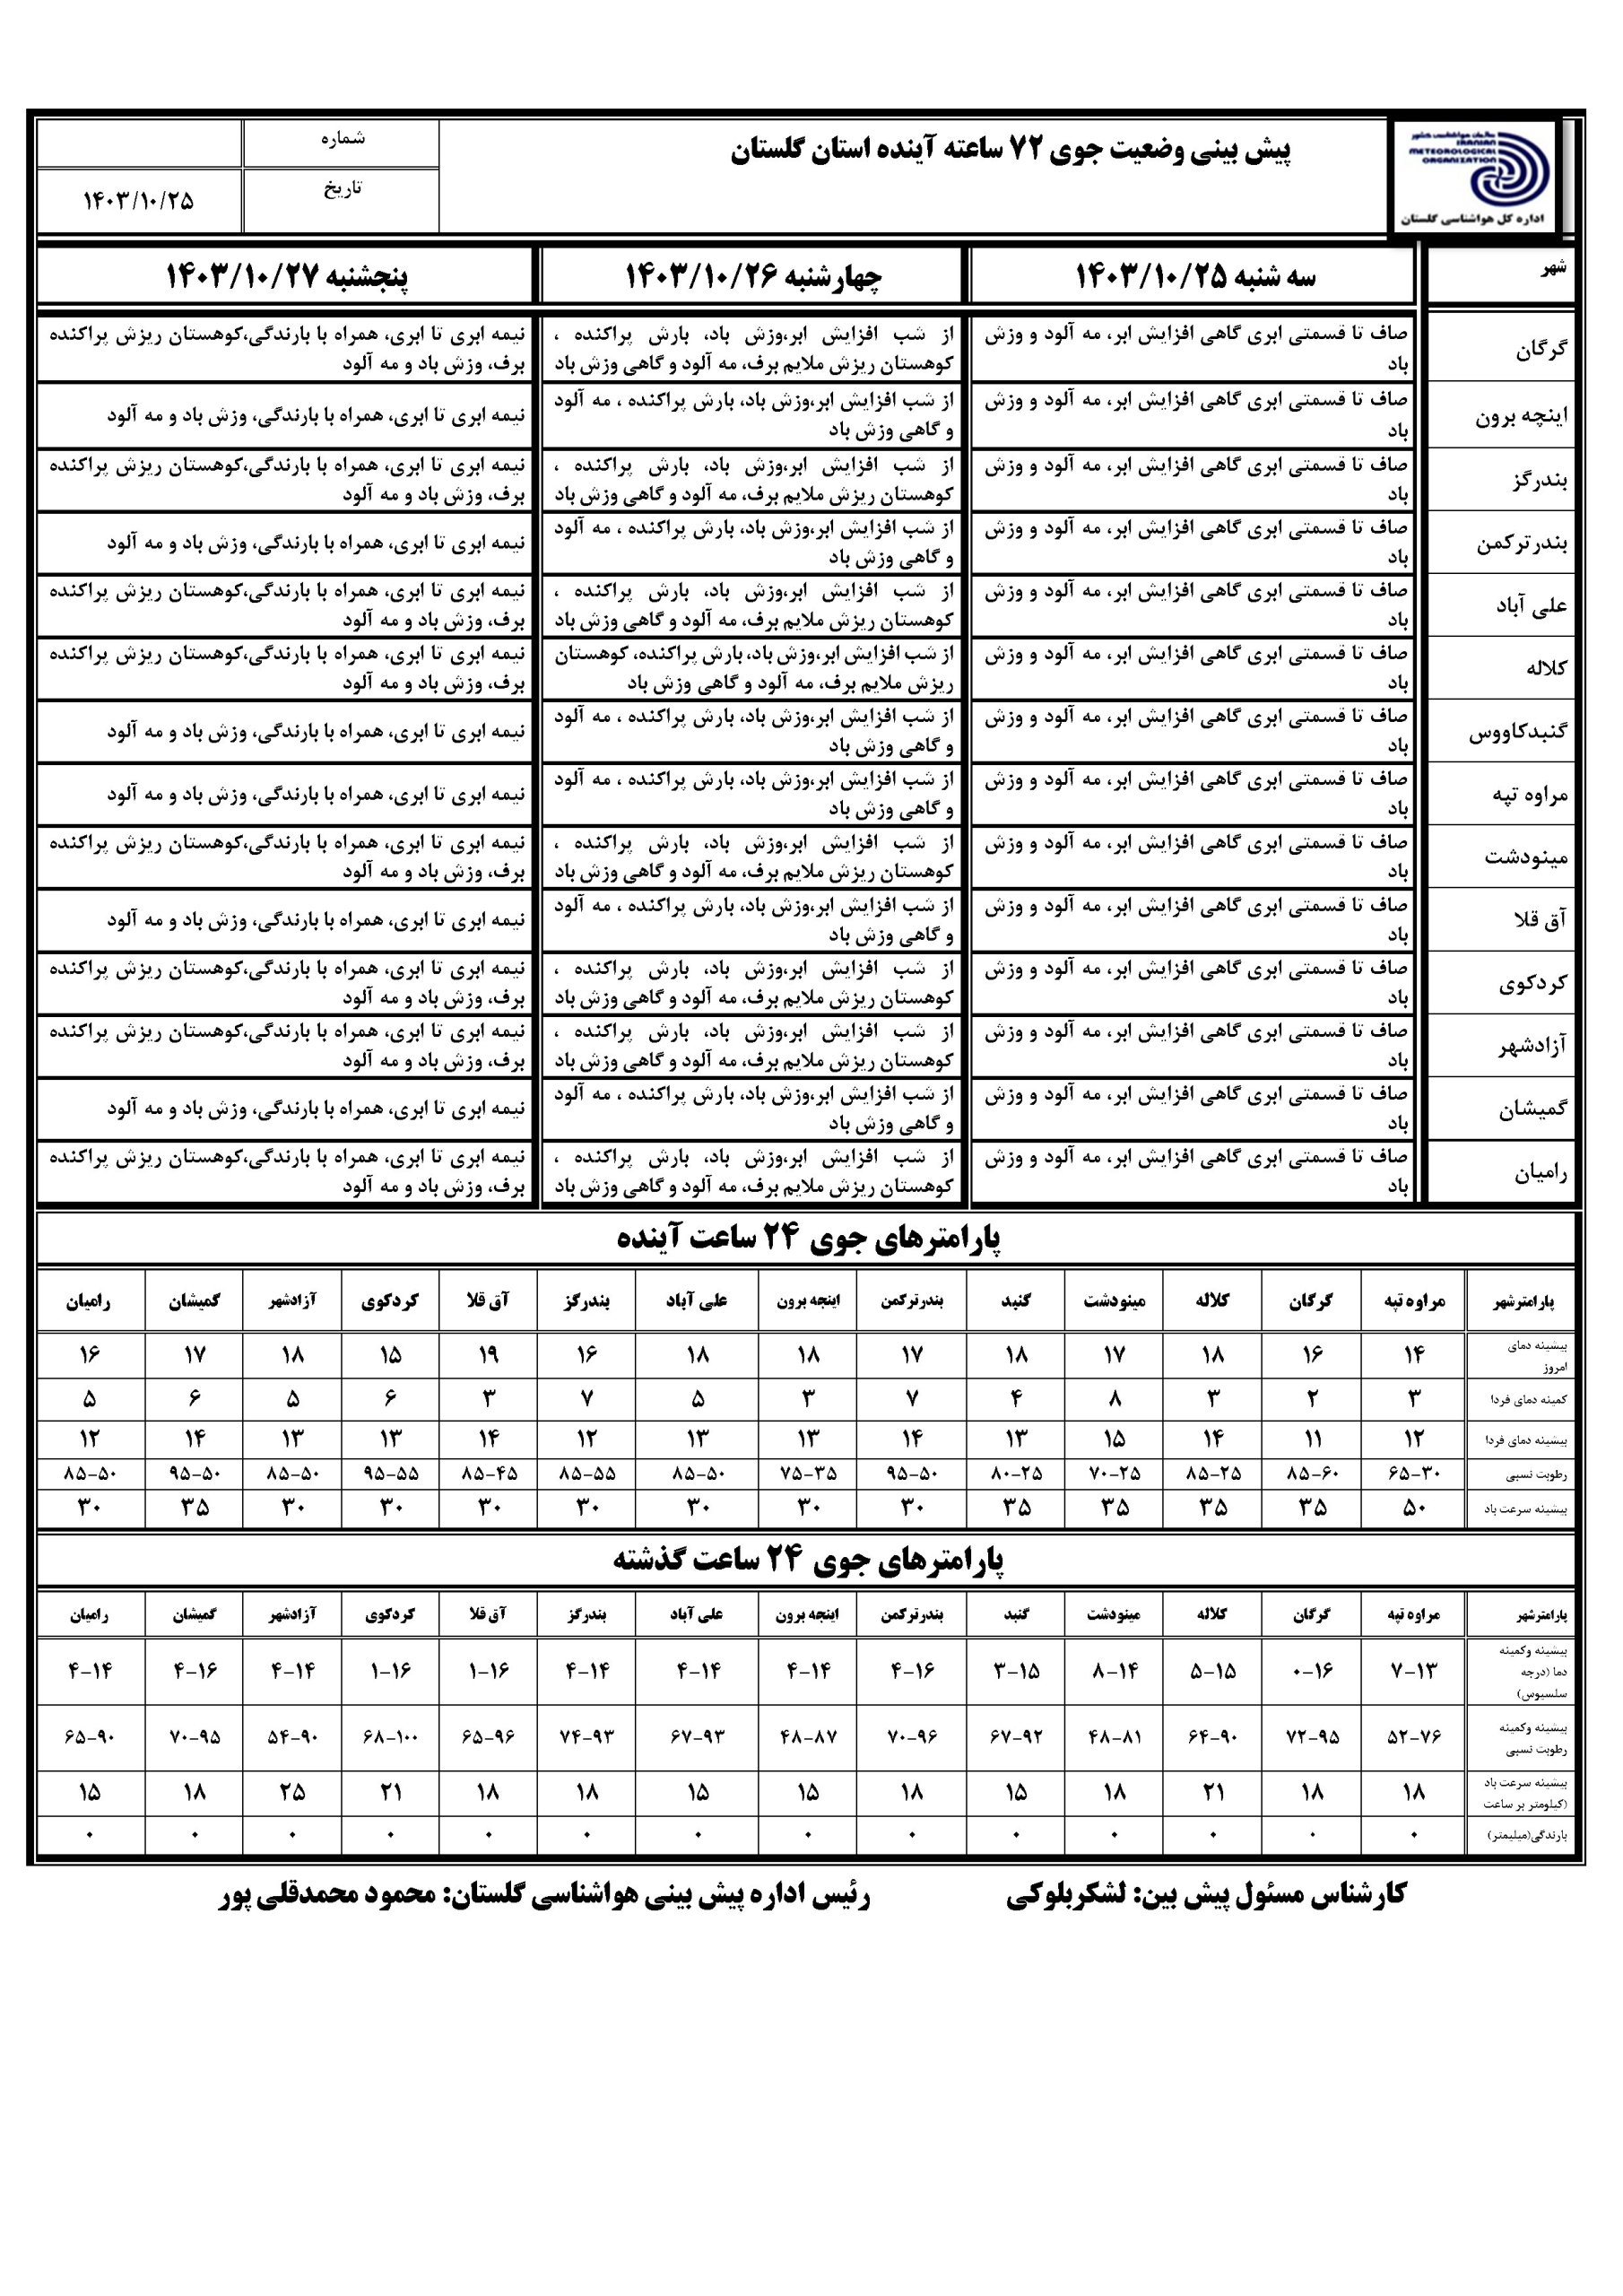 سازمان هواشناسی کشور
IRANIAN
METEOROLOGICAL
ORGANIZATION
اداره کل هواشناسی گلستان
پیش بینی وضعیت جوی ۷۲ ساعته آینده استان گلستان
شماره
تاریخ ۱۴۰۳/۱۰/۲۵
شهر سه شنبه ۱۴۰۳/۱۰/۲۵ چهارشنبه ۱۴۰۳/۱۰/۲۶ پنجشنبه ۱۴۰۳/۱۰/۲۷
گرگان
صاف تا قسمتی ابری گاهی افزایش ابر، مه آلود و وزش
باد
از شب افزایش ابر،وزش باد، بارش پراکنده ،
کوهستان ریزش ملایم برف، مه آلود و گاهی وزش باد
نیمه ابری تا ابری، همراه با بارندگی،کوهستان ریزش پراکنده
برف، وزش باد و مه آلود
اینچه برون
صاف تا قسمتی ابری گاهی افزایش ابر، مه آلود و وزش
باد
از شب افزایش ابر،وزش باد، بارش پراکنده ، مه آلود
و گاهی وزش باد
نیمه ابری تا ابری، همراه با بارندگی، وزش باد و مه آلود
بندرگز
صاف تا قسمتی ابری گاهی افزایش ابر، مه آلود و وزش
باد
از شب افزایش ابر،وزش باد، بارش پراکنده ،
کوهستان ریزش ملایم برف، مه آلود و گاهی وزش باد
نیمه ابری تا ابری، همراه با بارندگی،کوهستان ریزش پراکنده
برف، وزش باد و مه آلود
بندرترکمن
صاف تا قسمتی ابری گاهی افزایش ابر، مه آلود و وزش
باد
از شب افزایش ابر،وزش باد، بارش پراکنده ، مه آلود
و گاهی وزش باد
نیمه ابری تا ابری، همراه با بارندگی، وزش باد و مه آلود
علی آباد
صاف تا قسمتی ابری گاهی افزایش ابر، مه آلود و وزش
باد
از شب افزایش ابر،وزش باد، بارش پراکنده ،
کوهستان ریزش ملایم برف، مه آلود و گاهی وزش باد
نیمه ابری تا ابری، همراه با بارندگی،کوهستان ریزش پراکنده
برف، وزش باد و مه آلود
کلاله
صاف تا قسمتی ابری گاهی افزایش ابر، مه آلود و وزش
باد
از شب افزایش ابر،وزش باد، بارش پراکنده، کوهستان
ریزش ملایم برف، مه آلود و گاهی وزش باد
نیمه ابری تا ابری، همراه با بارندگی،کوهستان ریزش پراکنده
برف، وزش باد و مه آلود
گنبدکاووس
صاف تا قسمتی ابری گاهی افزایش ابر، مه آلود و وزش
باد
از شب افزایش ابر،وزش باد، بارش پراکنده ، مه آلود
و گاهی وزش باد
نیمه ابری تا ابری، همراه با بارندگی، وزش باد و مه آلود
مراوه تپه
صاف تا قسمتی ابری گاهی افزایش ابر، مه آلود و وزش
باد
از شب افزایش ابر،وزش باد، بارش پراکنده ، مه آلود
و گاهی وزش باد
نیمه ابری تا ابری، همراه با بارندگی، وزش باد و مه آلود
مینودشت
صاف تا قسمتی ابری گاهی افزایش ابر، مه آلود و وزش
باد
از شب افزایش ابر،وزش باد، بارش پراکنده ،
کوهستان ریزش ملایم برف، مه آلود و گاهی وزش باد
نیمه ابری تا ابری، همراه با بارندگی،کوهستان ریزش پراکنده
برف، وزش باد و مه آلود
آق قلا
صاف تا قسمتی ابری گاهی افزایش ابر، مه آلود و وزش
باد
از شب افزایش ابر،وزش باد، بارش پراکنده ، مه آلود
و گاهی وزش باد
نیمه ابری تا ابری، همراه با بارندگی، وزش باد و مه آلود
کردکوی
صاف تا قسمتی ابری گاهی افزایش ابر، مه آلود و وزش
باد
از شب افزایش ابر،وزش باد، بارش پراکنده ،
کوهستان ریزش ملایم برف، مه آلود و گاهی وزش باد
نیمه ابری تا ابری، همراه با بارندگی،کوهستان ریزش پراکنده
برف، وزش باد و مه آلود
آزادشهر
صاف تا قسمتی ابری گاهی افزایش ابر، مه آلود و وزش
باد
از شب افزایش ابر،وزش باد، بارش پراکنده ،
کوهستان ریزش ملایم برف، مه آلود و گاهی وزش باد
نیمه ابری تا ابری، همراه با بارندگی،کوهستان ریزش پراکنده
برف، وزش باد و مه آلود
گمیشان
صاف تا قسمتی ابری گاهی افزایش ابر، مه آلود و وزش
باد
از شب افزایش ابر،وزش باد، بارش پراکنده ، مه آلود
و گاهی وزش باد
نیمه ابری تا ابری، همراه با بارندگی، وزش باد و مه آلود
رامیان
صاف تا قسمتی ابری گاهی افزایش ابر، مه آلود و وزش
باد
از شب افزایش ابر،وزش باد، بارش پراکنده ،
کوهستان ریزش ملایم برف، مه آلود و گاهی وزش باد
نیمه ابری تا ابری، همراه با بارندگی،کوهستان ریزش پراکنده
برف، وزش باد و مه آلود
پارامترهای جوی ۲۴ ساعت آینده
پارامترشهر مراوه تپه گرگان کلاله مینودشت گنبد بندرترکمن اینجه برون علی آباد بندرگز آق قلا کردکوی آزادشهر گمیشان رامیان
بیشینه دمای
امروز
۱۴ ۱۶ ۱۸ ۱۷ ۱۸ ۱۷ ۱۸ ۱۸ ۱۶ ۱۹ ۱۵ ۱۸ ۱۷ ۱۶
کمینه دمای فردا ۳ ۲ ۳ ۸ ۴ ۷ ۳ ۵ ۷ ۳ ۶ ۵ ۶ ۵
بیشینه دمای فردا ۱۲ ۱۱ ۱۴ ۱۵ ۱۳ ۱۴ ۱۳ ۱۳ ۱۲ ۱۴ ۱۳ ۱۳ ۱۴ ۱۲
رطوبت نسبی ۶۵-۳۰ ۸۵-۶۰ ۸۵-۲۵ ۷۰-۲۵ ۸۰-۲۵ ۹۵-۵۰ ۷۵-۳۵ ۸۵-۵۰ ۸۵-۵۵ ۸۵-۴۵ ۹۵-۵۵ ۸۵-۵۰ ۹۵-۵۰ ۸۵-۵۰
بیشینه سرعت باد ۵۰ ۳۵ ۳۵ ۳۵ ۳۵ ۳۰ ۳۰ ۳۰ ۳۰ ۳۰ ۳۰ ۳۰ ۳۵ ۳۰
پارامترهای جوی ۲۴ ساعت گذشته
پارامترشهر مراوه تپه گرگان کلاله مینودشت گنبد بندرترکمن اینجه برون علی آباد بندرگز آق قلا کردکوی آزادشهر گمیشان رامیان
بیشینه وکمینه
دما (درجه
سلسیوس)
۷-۱۳ ۰-۱۶ ۵-۱۵ ۸-۱۴ ۳-۱۵ ۴-۱۶ ۴-۱۴ ۴-۱۴ ۴-۱۴ ۱-۱۶ ۱-۱۶ ۴-۱۴ ۴-۱۶ ۴-۱۴
بیشینه وکمینه
رطوبت نسبی
۵۲-۷۶ ۷۲-۹۵ ۶۴-۹۰ ۴۸-۸۱ ۶۷-۹۲ ۷۰-۹۶ ۴۸-۸۷ ۶۷-۹۳ ۷۴-۹۳ ۶۵-۹۶ ۶۸-۱۰۰ ۵۴-۹۰ ۷۰-۹۵ ۶۵-۹۰
بیشینه سرعت باد
(کیلومتر بر ساعت
۱۸ ۱۸ ۲۱ ۱۸ ۱۵ ۱۸ ۱۵ ۱۵ ۱۸ ۱۸ ۲۱ ۲۵ ۱۸ ۱۵
بارندگی(میلیمتر) ۰ ۰ ۰ ۰ ۰ ۰ ۰ ۰ ۰ ۰ ۰ ۰ ۰ ۰
کارشناس مسئول پیش بین: لشکربلوکی رئیس اداره پیش بینی هواشناسی گلستان: محمود محمدقلی پور